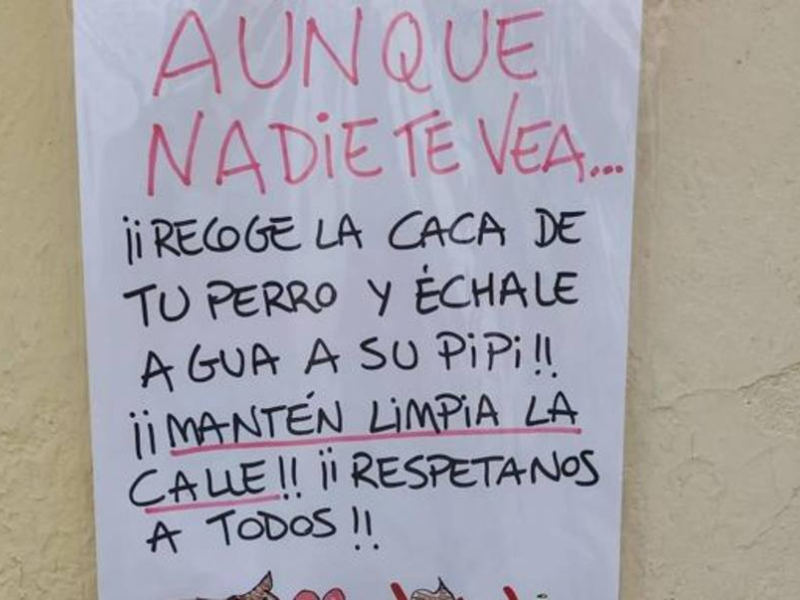 AUNQUE
NADiE TE VEA...
¡¡RECOGE LA CACA DE
TU PERRO Y ÉCHALE
AGUA A SU PiPi!!
¡¡MANTÉN LiMPiA LA
CALLE!! ¡¡RESPETANOS
A TODOS!!